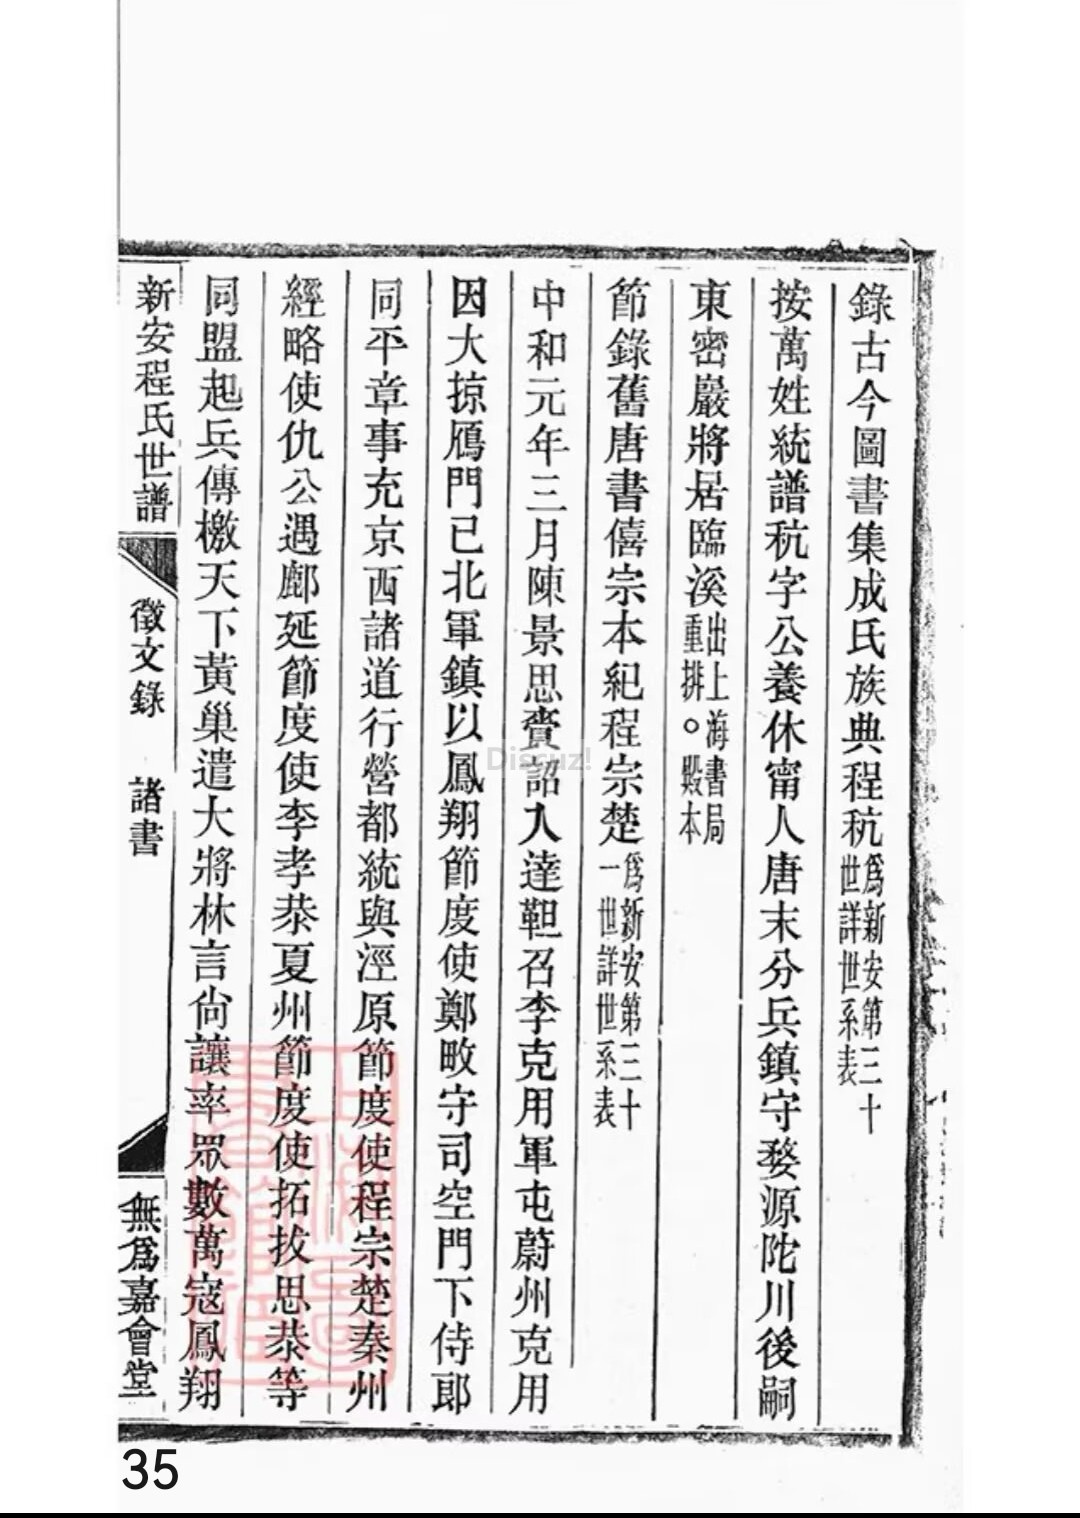 錄古今圖書集成氏族典程秔爲新安第三十世詳世系表
按萬姓統譜秔字公養休甯人唐末分兵鎮守婺源陀川後嗣
東密巖將居臨溪出上海書局重排。殿本
節錄舊唐書僖宗本紀程宗楚爲新安第三十一世詳世系表
中和元年三月陳景思賚詔入達靼召李克用軍屯蔚州克用
因大掠鴈門已北軍鎮以鳳翔節度使鄭畋守司空門下侍郎
同平章事充京西諸道行營都統與涇原節度使程宗楚秦州
經略使仇公遇鄜延節度使李孝恭夏州節度使拓拔思恭等
同盟起兵傳檄天下黃巢遣大將林言尙讓率眾數萬寇鳳翔
新安程氏世譜
徵文錄 諸書
無爲嘉會堂
35
Discuz!